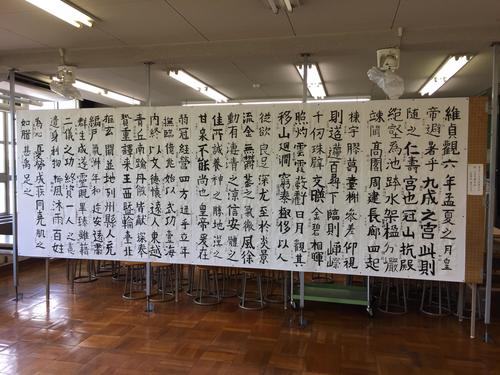 維貞觀六年孟夏之月皇
帝避暑乎九成之宮此則
隨之仁壽宮也冠山抗殿
絕壑為池跨水架楹分巖
竦闕高閣周建長廊四起
棟宇膠葛臺榭參差仰視
則迢遞百尋下臨則崢嶸
千仞珠璧交暎金碧相暉
照灼雲霞蔽虧日月觀其
移山迴澗窮泰極侈以人
從欲良足深尤至於炎景
流金無鬱蒸之氣微風徐
動有淒清之涼信安體之
佳所誠養神之勝地漢之
甘泉不能尚也皇帝爰在
弱冠經營四方逮乎立年
撫臨億兆始以武功壹海
內終以文德懷遠人東越
青丘南踰丹徼皆獻琛奉
贄重譯來王西暨輪臺北
拒玄闕並地列州縣人充
編戶氣淑年和邇安遠肅
群生咸遂靈貺畢臻雖藉
二儀之功終資一人之慮
遺身利物櫛風沐雨百姓
為心憂勞成疾同堯肌之
如腊甚禹足之